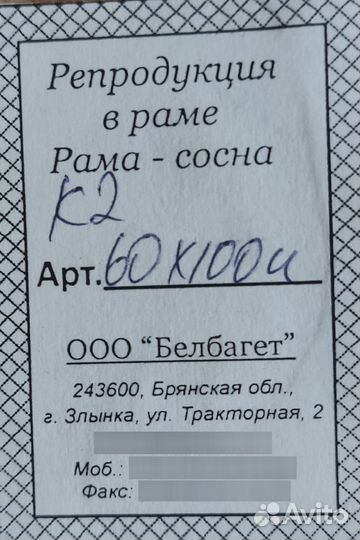 Репродукция
в раме
Рама - сосна
К2
Арт. 60х100и
ООО "Белбагет"
243600, Брянская обл.,
г. Злынка, ул. Тракторная, 2
Моб.:
Факс:
Avito